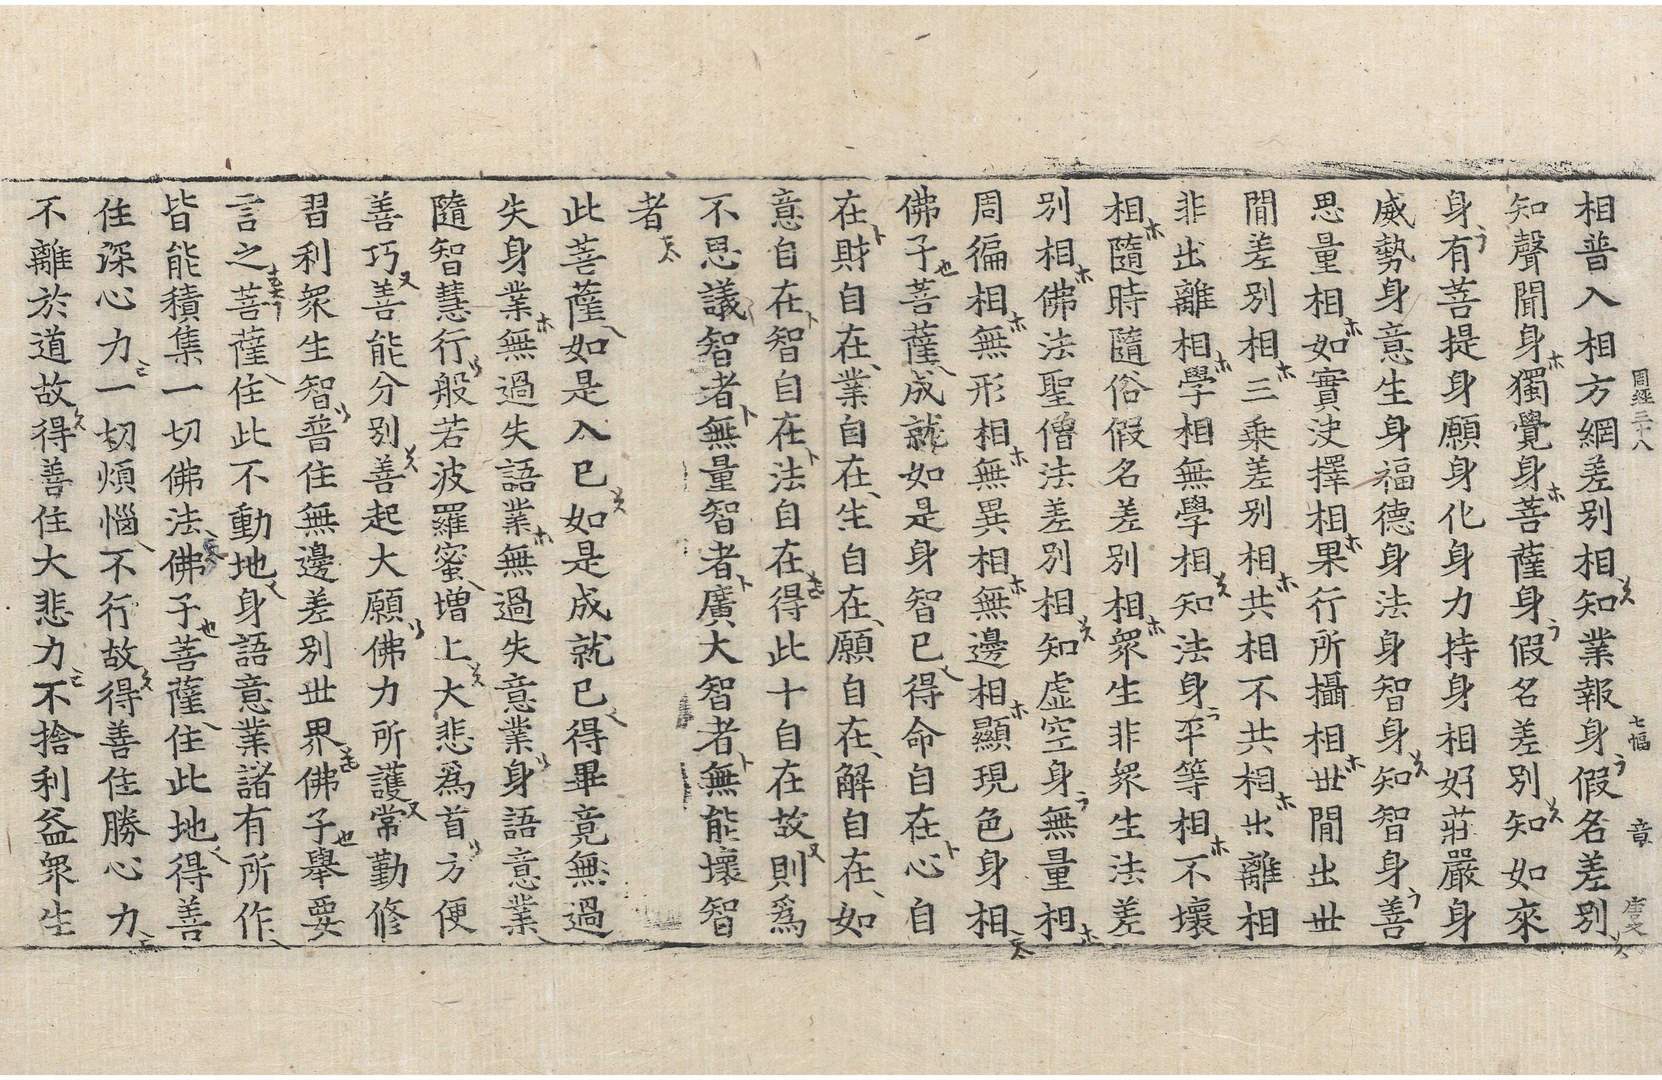 相普入相方網差別相知業報身假名差別
知聲聞身獨覺身菩薩身假名差別知如來
身有菩提身願身化身力持身相好莊嚴身
威勢身意生身福德身法身智身知智身善
思量相如實決擇相果行所攝相世間出世
間差別相三乘差別相共相不共相出離相
非出離相學相無學相知法身平等相不壞
相隨時隨俗假名差別相眾生非眾生法差
別相佛法聖僧法差別相知虛空身無量相
周徧相無形相無異相無邊相顯現色身相
佛子菩薩成就如是身智已得命自在心自
在財自在業自在生自在願自在解自在如
意自在智自在法自在得此十自在故則為
不思議智者無量智者廣大智者無能壞智
者
此菩薩如是入已如是成就已得畢竟無過
失身業無過失語業無過失意業身語意業
隨智慧行般若波羅蜜增上大悲為首方便
善巧善能分別善起大願佛力所護常勤修
習利眾生智普住無邊差別世界佛子舉要
言之菩薩住此不動地身語意業諸有所作
皆能積集一切佛法佛子菩薩住此地得善
住深心力一切煩惱不行故得善住勝心力
不離於道故得善住大悲力不捨利益眾生
周經三十八 七幅 章